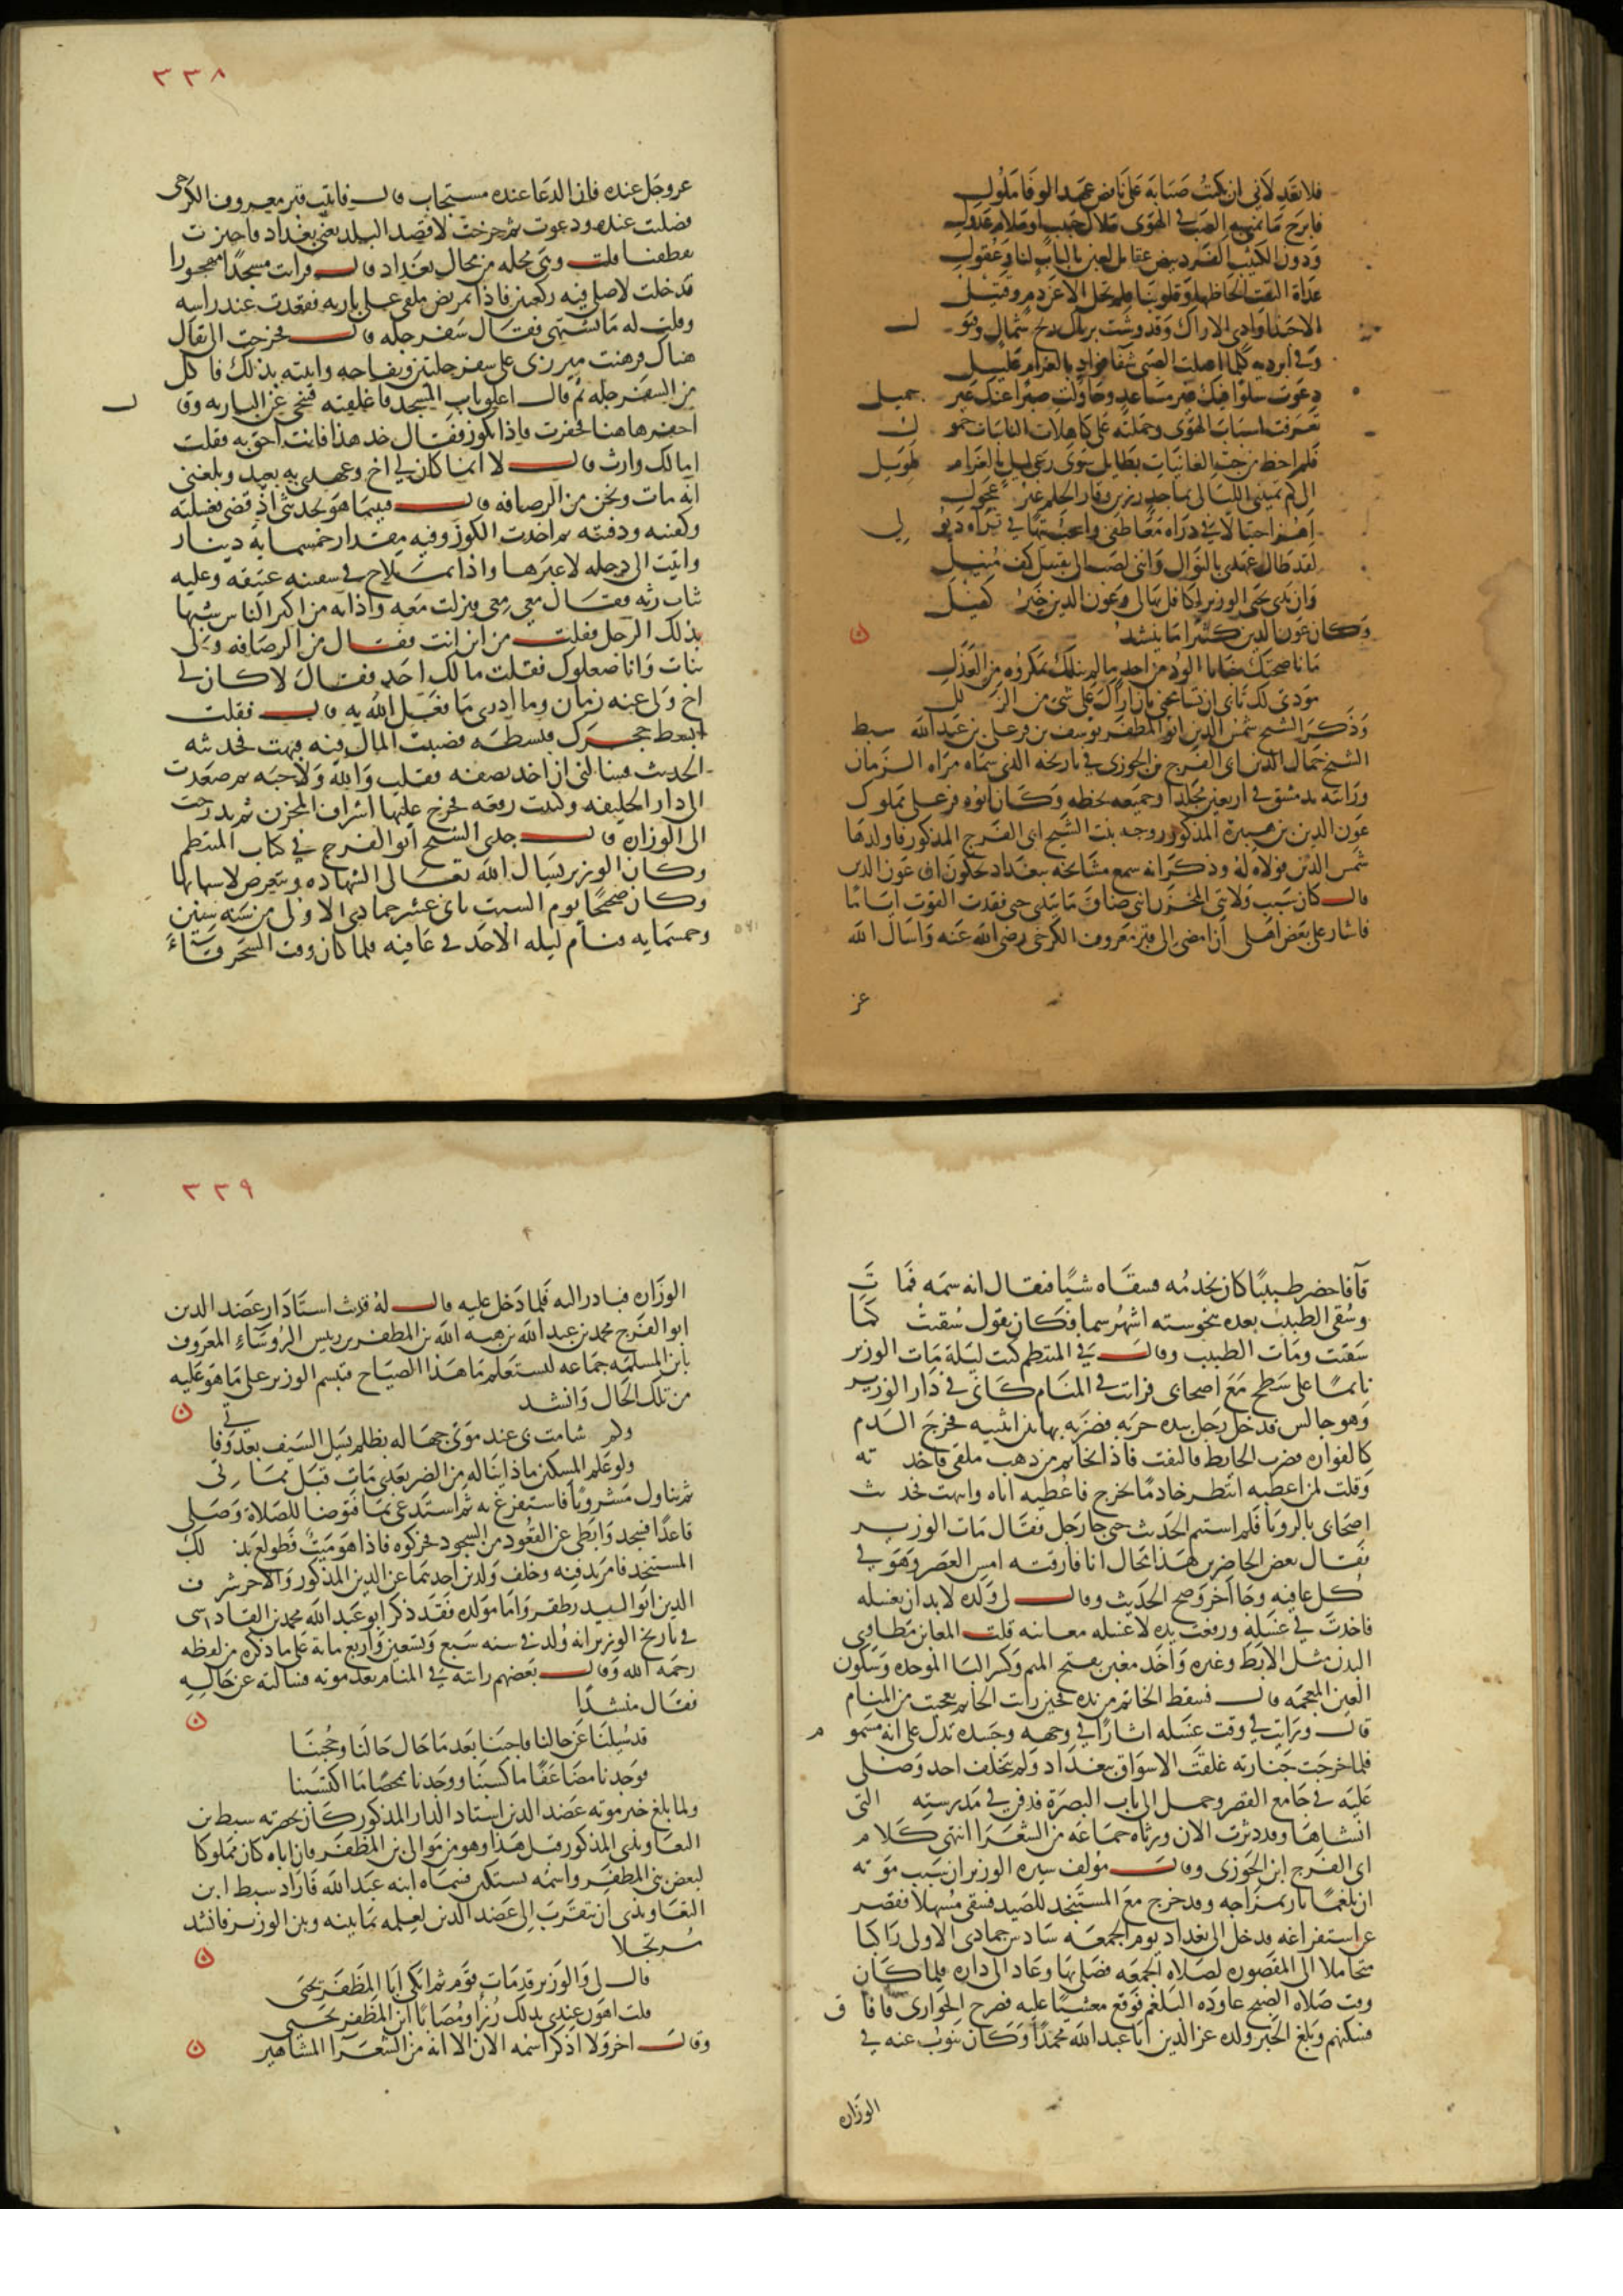 فلا تعذلاني ان بكيت صبابة على ناقض عهد الوفا ملول
فابرح ما يمنى به الصب في الهوى ملال حبيب او ملام عذول
ودون الكثيب الفرد بيض عقايل لعبن بالباب لنا وعقول
غداة التقت الحاظها وقلوبنا فلم تحل الا عن دم وقتيل
الا حبذا وادي الاراك وقد وشت برياك ريح شمال وقبو ل
وفي ابرديه كلما اعتلت الصبى شفا فواد بالغرام عليل
دعوت سلوا فيك غير مساعد وحاولت صبرا عنك غير جميل
تعرفت اسباب الهوى وحملته على كاهل للنايبات حمو ل
فلم احظ من حب الغانيات بطايل سوى رعي ليل بالغرام طويل
الى كم تمنيني الليالي بماجد رزين وقار الحلم غير عجول
اهز اختيالا في ذراه معاطفي واسحب تيها في ثراه ذيو لي
لقد طال عهدي بالنوال وانني لصب الى تقبيل كف منيل
وان ندى يحيى الوزير لكافل بها لي وعون الدين خير كفيل
وكان عون الدين كثيرا ما ينشد
ما ناصحتك خبايا الود من احد ما لم ينلك بمكروه من العذل
مودتي لك تابى ان تسامحني بان اراك على شي من الز لل
وذكر الشيخ شمس الدين ابو المظفر يوسف بن قزعلي بن عبد الله سبط
الشيخ جمال الدين ابي الفرج بن الجوزي في تاريخه الذي سماه مراه الزمان
ورايته بدمشق في اربعين مجلدا وجميعه بخطه وكان ابوه قزعلي مملوك
عون الدين بن هبيرة المذكور زوجه بنت الشيخ ابي الفرج المذكور فاولدها
شمس الدين فولاه له وذكر انه سمع مشايخه ببغداد يحكون ان عون الدين
قال كان سبب ولايتي المخزن انني ضاق ما بيدي حتى فقدت القوت اياما
فاشار علي بعض اهلي ان امضي الى قبر معروف الكرخي رضي الله عنه واسال الله
عز
٣٣٨
عز وجل عنده فان الدعا عنده مستجاب قال فاتيت قبر معروف الكرخي
فصليت عنده ودعوت ثم خرجت لاقصد البلد يعني بغداد فاجتزت
بقطفتا قلت وهي محله من محال بغداد قال فرايت مسجدا مهجورا
فدخلت لاصلي فيه ركعتين فاذا بمريض ملقى على باريه فقعدت عند راسه
وقلت له ما تشتهي فقال سفرجله قال فخرجت الى بقال
هناك فرهنت ميزري على سفرجلتين وتفاحه واتيته بذلك فاكل
من السفرجله ثم قال اغلق باب المسجد فاغلقته فتنحى عن الباريه وقا ل
احفر هاهنا فحفرت فاذا بكوز فقال خذ هذا فانت احق به فقلت
اما لك وارث قال لا انما كان لي اخ وعهدي به بعيد وبلغني
انه مات ونحن من الرصافه قال فبينما هو يحدثني اذ قضى فغسلته
وكفنته ودفنته ثم اخذت الكوز وفيه مقدار خمسمايه دينار
واتيت الى دجله لاعبرها واذا بملاح في سفينه عتيقه وعليه
ثياب رثه فقال معي معي فنزلت معه واذا به من اكبر الناس شبها
بذلك الرجل فقلت من اين انت فقال من الرصافه ولي
بنات وانا صعلوك فقلت ما لك احد فقال لا كان لي
اخ ولي عنه زمان وما ادري ما فعل الله به قال فقلت
ابسط حجرك فبسطه فصببت المال فيه فبهت فحدثته
الحديث فسالني ان اخذ نصفه فقلت والله ولا حبه ثم صعدت
الى دار الخليفه وكتبت رقعه فخرج عليها اشراف المخزن ثم تدرجت
الى الوزاره قال جدي الشيخ ابو الفرج في كتاب المنتظم
وكان الوزير يسال الله تعالى الشهاده ويتعرض لاسبابها
وكان صحيحا يوم السبت ثاني عشر جمادي الاولى من سنه ستين
وخمسمايه فنام ليله الاحد في عافيه فلما كان وقت السحر قاء
قآفاحضر طبيبا كان يخدمه فسقاه شيا فيقال انه سمه فما تَ
وسقي الطبيب بعده بنحو سته اشهر سما فكان يقول سقيت كما
سقيت ومات الطبيب وقال في المنتظم كنت ليلة مات الوزير
نايما على سطح مع اصحابي فرايت في المنام كاني في دار الوزير
وهو جالس فدخل رجل بيده حربه فضربه بها بين انثييه فخرج الدم
كالفواره فضرب الحايط فالتفت فاذا بخاتم من ذهب ملقى فاخذ ته
وقلت لمن اعطيه انتظر خادما يخرج فاعطيه اياه وانبهت فحد ثت
اصحابي بالرويا فلم استتم الحديث حتى جا رجل فقال مات الوزير
فقال بعض الحاضرين هذا محال انا فارقته امس العصر وهو في
كل عافيه وجا اخر وصح الحديث وقال لي ولده لا بد ان تغسله
فاخذت في غسله ورفعت يده لاغسل مغابنه قلت المغابن مطاوي
البدن مثل الابط وغيره واحد مغبن بفتح الميم وكسر البا الموحده وسكون
الغين المعجمه قال فسقط الخاتم من يده فحين رايت الخاتم تعجبت من المنام
قال ورايت في وقت غسله اثارا في وجهه وجسده تدل على انه مسمو م
فلما خرجت جنازته غلقت الاسواق ببغداد ولم يتخلف احد وصلي
عليه في جامع القصر وحمل الى باب البصرة فدفن في مدرسته التي
انشاها وقد دثرت الان ورثاه جماعه من الشعرا انتهى كلام
ابي الفرج ابن الجوزي وقال مولف سيره الوزير ان سبب مو ته
ان بلغما ثار بمزاجه وقد خرج مع المستنجد للصيد فسقي مسهلا فقصر
عن استفراغه فدخل الى بغداد يوم الجمعه سادس جمادى الاولى راكبا
متحاملا الى المقصوره لصلاه الجمعه فصلى بها وعاد الى داره فلما كان
وقت صلاه الصبح عاوده البلغم فوقع مغشيا عليه فصرخ الجواري فافا ق
فسكتهم وبلغ الخبر ولده عز الدين ابا عبد الله محمدا وكان ينوب عنه في
الوزاره
٣٣٩
الوزاره فبادر اليه فلما دخل عليه قال له قد بث استاد ار عضد الدين
ابو الفرج محمد بن عبد الله بن هبه الله بن المظفر بن رييس الروساء المعروف
بابن المسلمه جماعه ليستعلم ما هذا الصياح فتبسم الوزير على ما هو عليه
من تلك الحال وانشد
وكم شامت بي عند موتي جهاله بظلم يسل السيف بعد وفا تي
ولو علم المسكين ماذا يناله من الضر بعدي مات قبل مما تي
ثم تناول مشروبا فاستفرغ به ثم استدعى بما فتوضا للصلاة وصلى
قاعدا فسجد وابطى عن القعود من السجود فحركوه فاذا هو ميت فطولع بذ لك
المستنجد فامر بدفنه وخلف ولدين احدهما عز الدين المذكور والاخر شر ف
الدين ابو الوليد مظفر واما مولده فقد ذكر ابو عبد الله محمد بن القادسي
في تاريخ الوزير انه ولد في سنه سبع وتسعين واربع مائة على ما ذكره من لفظه
رحمه الله وقال بعضهم رايته في المنام بعد موته فسالته عن حاله
فقال منشدا
قد سيلنا عن حالنا فاجبنا بعد ما حال حالنا وحجبنا
فوجدنا مضاعفا ما كسبنا ووجدنا ممحصا ما اكتسبنا
ولما بلغ خبر موته عضد الدين استاد الدار المذكور كان بحضرته سبط بن
التعاويذي المذكور قبل هذا وهو من موالي بني المظفر فان اباه كان مملوكا
لبعض بني المظفر واسمه نستكين فسماه ابنه عبد الله فاراد سبط ابن
التعاويذي ان يتقرب الى عضد الدين لعلمه بما بينه وبين الوزير فانشد
مرتجلا
قال لي والوزير قد مات قوم قم لنبكي ابا المظفر يحيى
قلت اهون عندي بذلك رزءا ومصابا ابن المظفر يحيى
وقال اخر ولا اذكر اسمه الان الا انه من الشعرا المشاهير